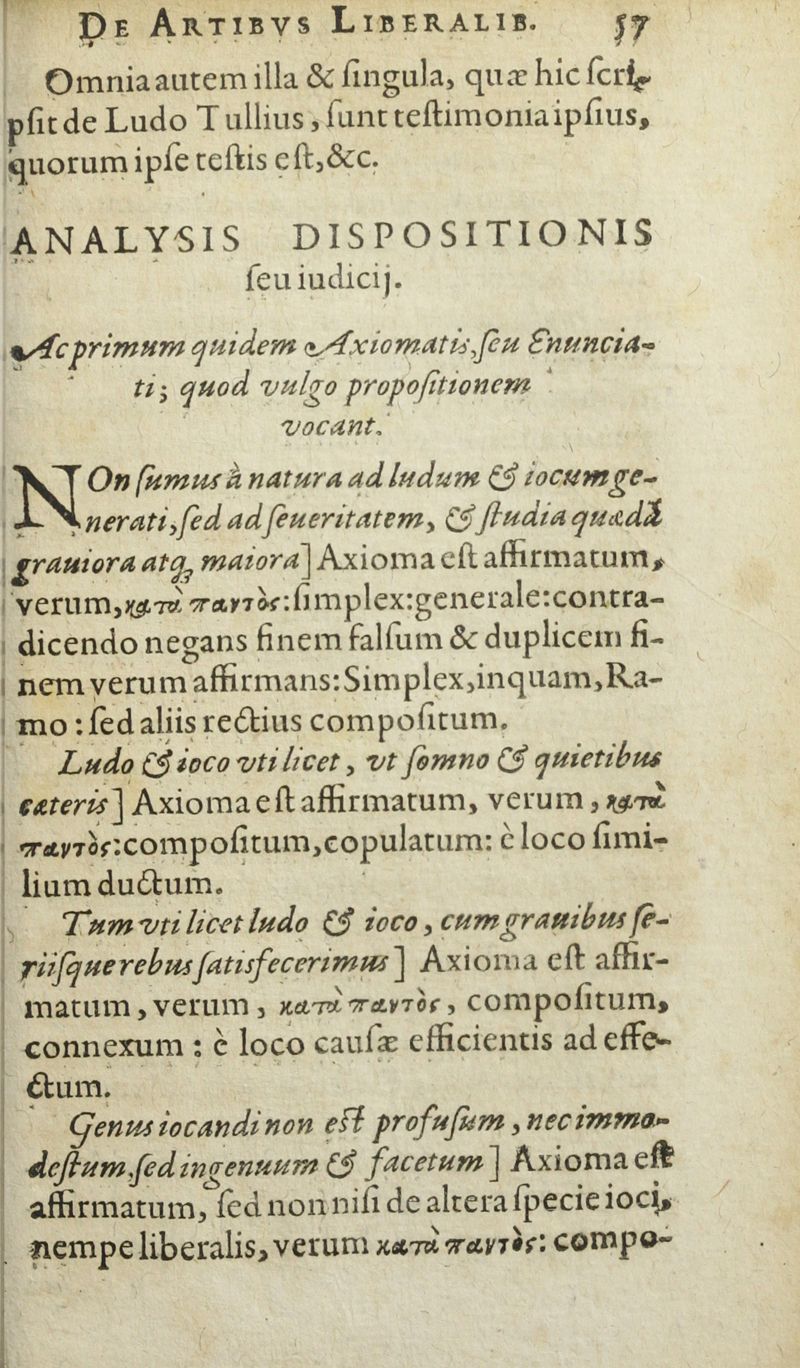 DE ARTIBVS LIBERALIB. 57
Omnia autem illa & ſingula, quæ hic ſcri-
pſit de Ludo Tullius, ſunt teſtimonia ipſius,
quorum ipſe teſtis eſt, &c.
ANALYSIS DISPOSITIONIS
ſeu iudicij.
Ac primum quidem Axiomatis, ſeu Enuncia-
ti; quod vulgo propoſitionem
vocant.
NOn ſumus à natura ad ludum & iocum ge-
nerati, ſed ad ſeueritatem, & ſtudia quædã
grauiora atq; maiora] Axioma eſt affirmatum,
verum, κατὰ παντὸς: ſimplex: generale: contra-
dicendo negans finem falſum & duplicem fi-
nem verum affirmans: Simplex, inquam, Ra-
mo: ſed aliis rectius compoſitum.
Ludo & ioco vti licet, vt ſomno & quietibus
cæteris] Axioma eſt affirmatum, verum, κατὰ
παντὸς: compoſitum, copulatum: è loco ſimi-
lium ductum.
Tum vti licet ludo & ioco, cum grauibus ſe-
riiſque rebus ſatisfecerimus] Axioma eſt affir-
matum, verum, κατὰ παντὸς, compoſitum,
connexum: è loco cauſæ efficientis ad effe-
ctum.
Genus iocandi non eſt profuſum, nec immo-
deſtum, ſed ingenuum & facetum] Axioma eſt
affirmatum, ſed non niſi de altera ſpecie ioci,
nempe liberalis, verum κατὰ παντὸς: compo-